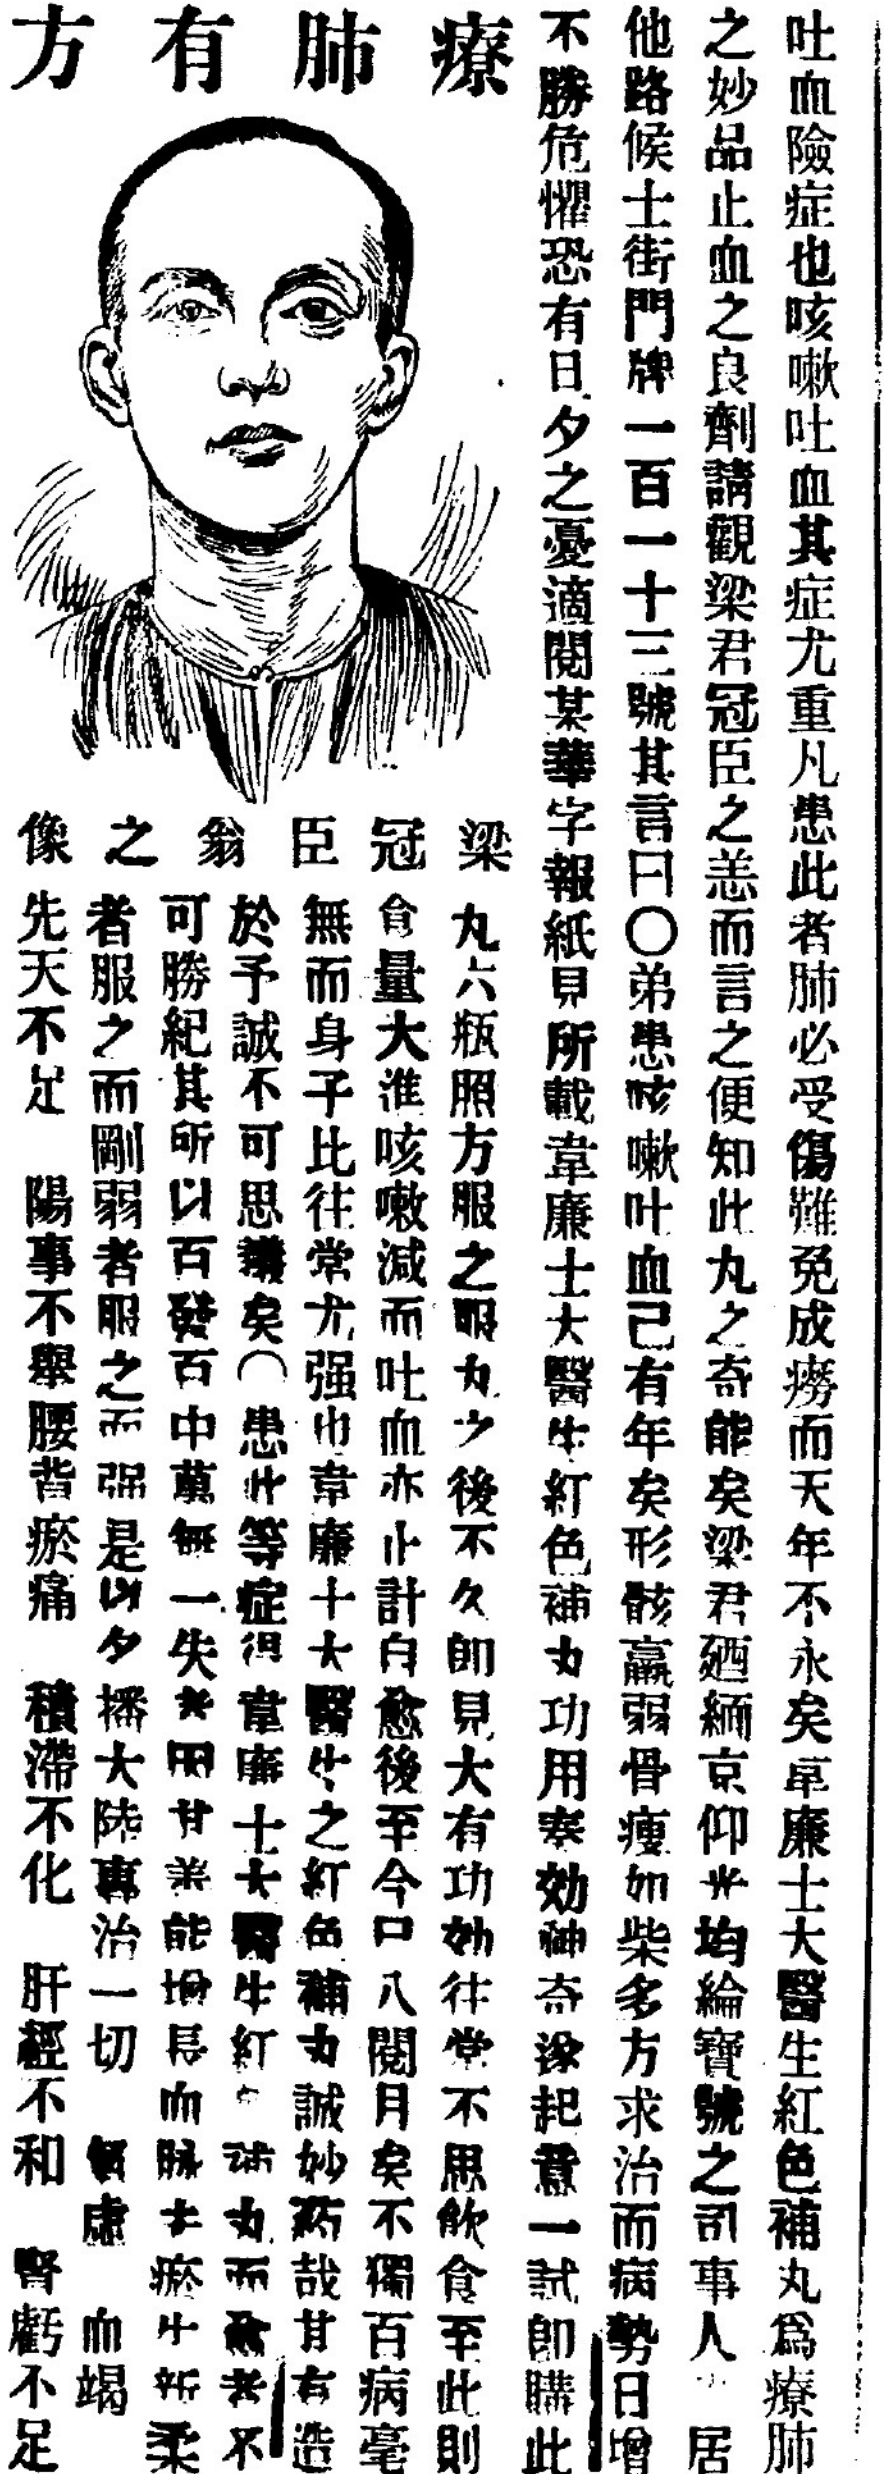 療肺有方
吐血險症也咳嗽吐血其症尤重凡患此者肺必受傷難免成癆而天年不永矣韋廉士大醫生紅色補丸爲療肺
之妙品止血之良劑請觀梁君冠臣之恙而言之便知此丸之奇能矣梁君廼緬京仰光均綸寶號之司事人 居
他路候士街門牌一百一十三號其言曰〇弟患咳嗽吐血已有年矣形骸羸弱骨瘦如柴多方求治而病勢日增
不勝危懼恐有日夕之憂適閱某華字報紙見所載韋廉士大醫生紅色補丸功用奏効神奇遂起意一試卽購此
梁冠臣翁之像
丸六瓶照方服之服丸之後不久卽見大有功効往常不思飲食至此則
食量大進咳嗽減而吐血亦止計自愈後至今已八閱月矣不獨百病毫
無而身子比往常尤强也韋廉士大醫生之紅色補丸誠妙藥哉其有造
於予誠不可思議矣（患此等症得韋廉士大醫生紅色補丸而愈者不
可勝紀其所以百發百中萬無一失者因其善能增長血脉去瘀生新柔
者服之而剛弱者服之而强是以名播大陸專治一切 氣虛 血竭
先天不足 陽事不舉 腰背瘀痛 積滯不化 肝經不和 腎虧不足